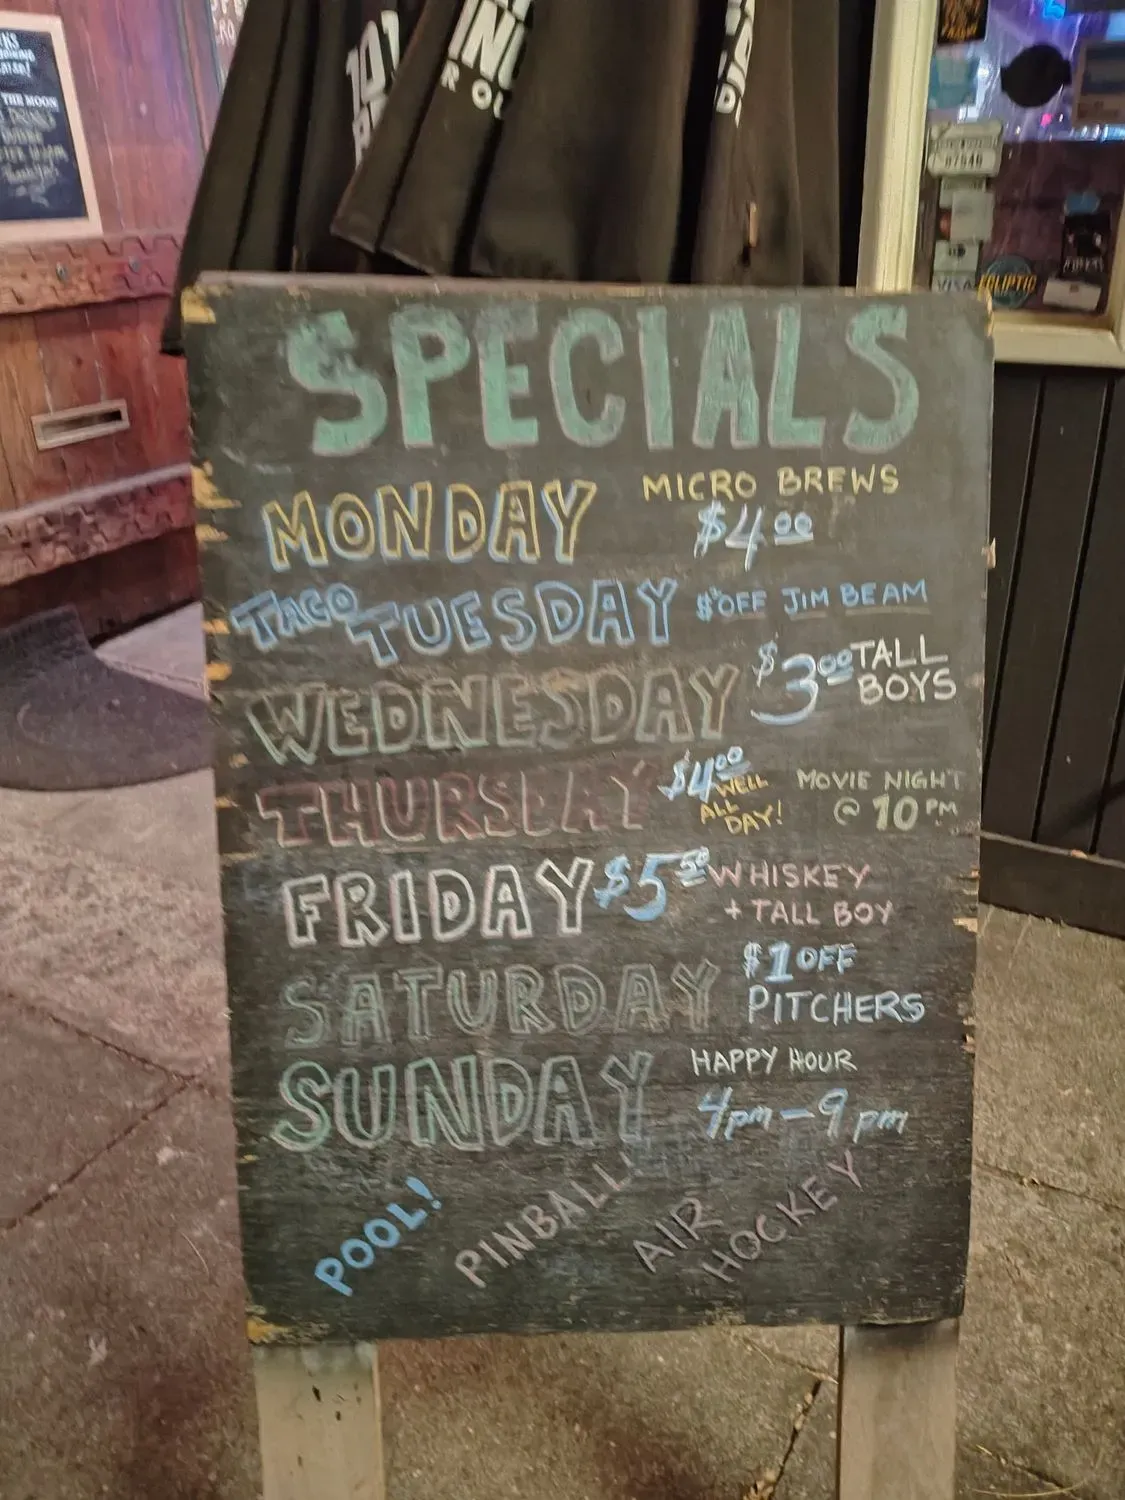 THE MOON
07946
VISA
ECLIPTIC
SPECIALS
MONDAY MICRO BREWS
$4.00
TACO TUESDAY $1 OFF JIM BEAM
WEDNESDAY $3.00 TALL
BOYS
THURSDAY $4.00 WELL
ALL
DAY!
MOVIE NIGHT
@ 10 PM
FRIDAY $5.50 WHISKEY
+ TALL BOY
SATURDAY $1 OFF
PITCHERS
SUNDAY HAPPY HOUR
4pm-9pm
POOL!
PINBALL!
AIR
HOCKEY